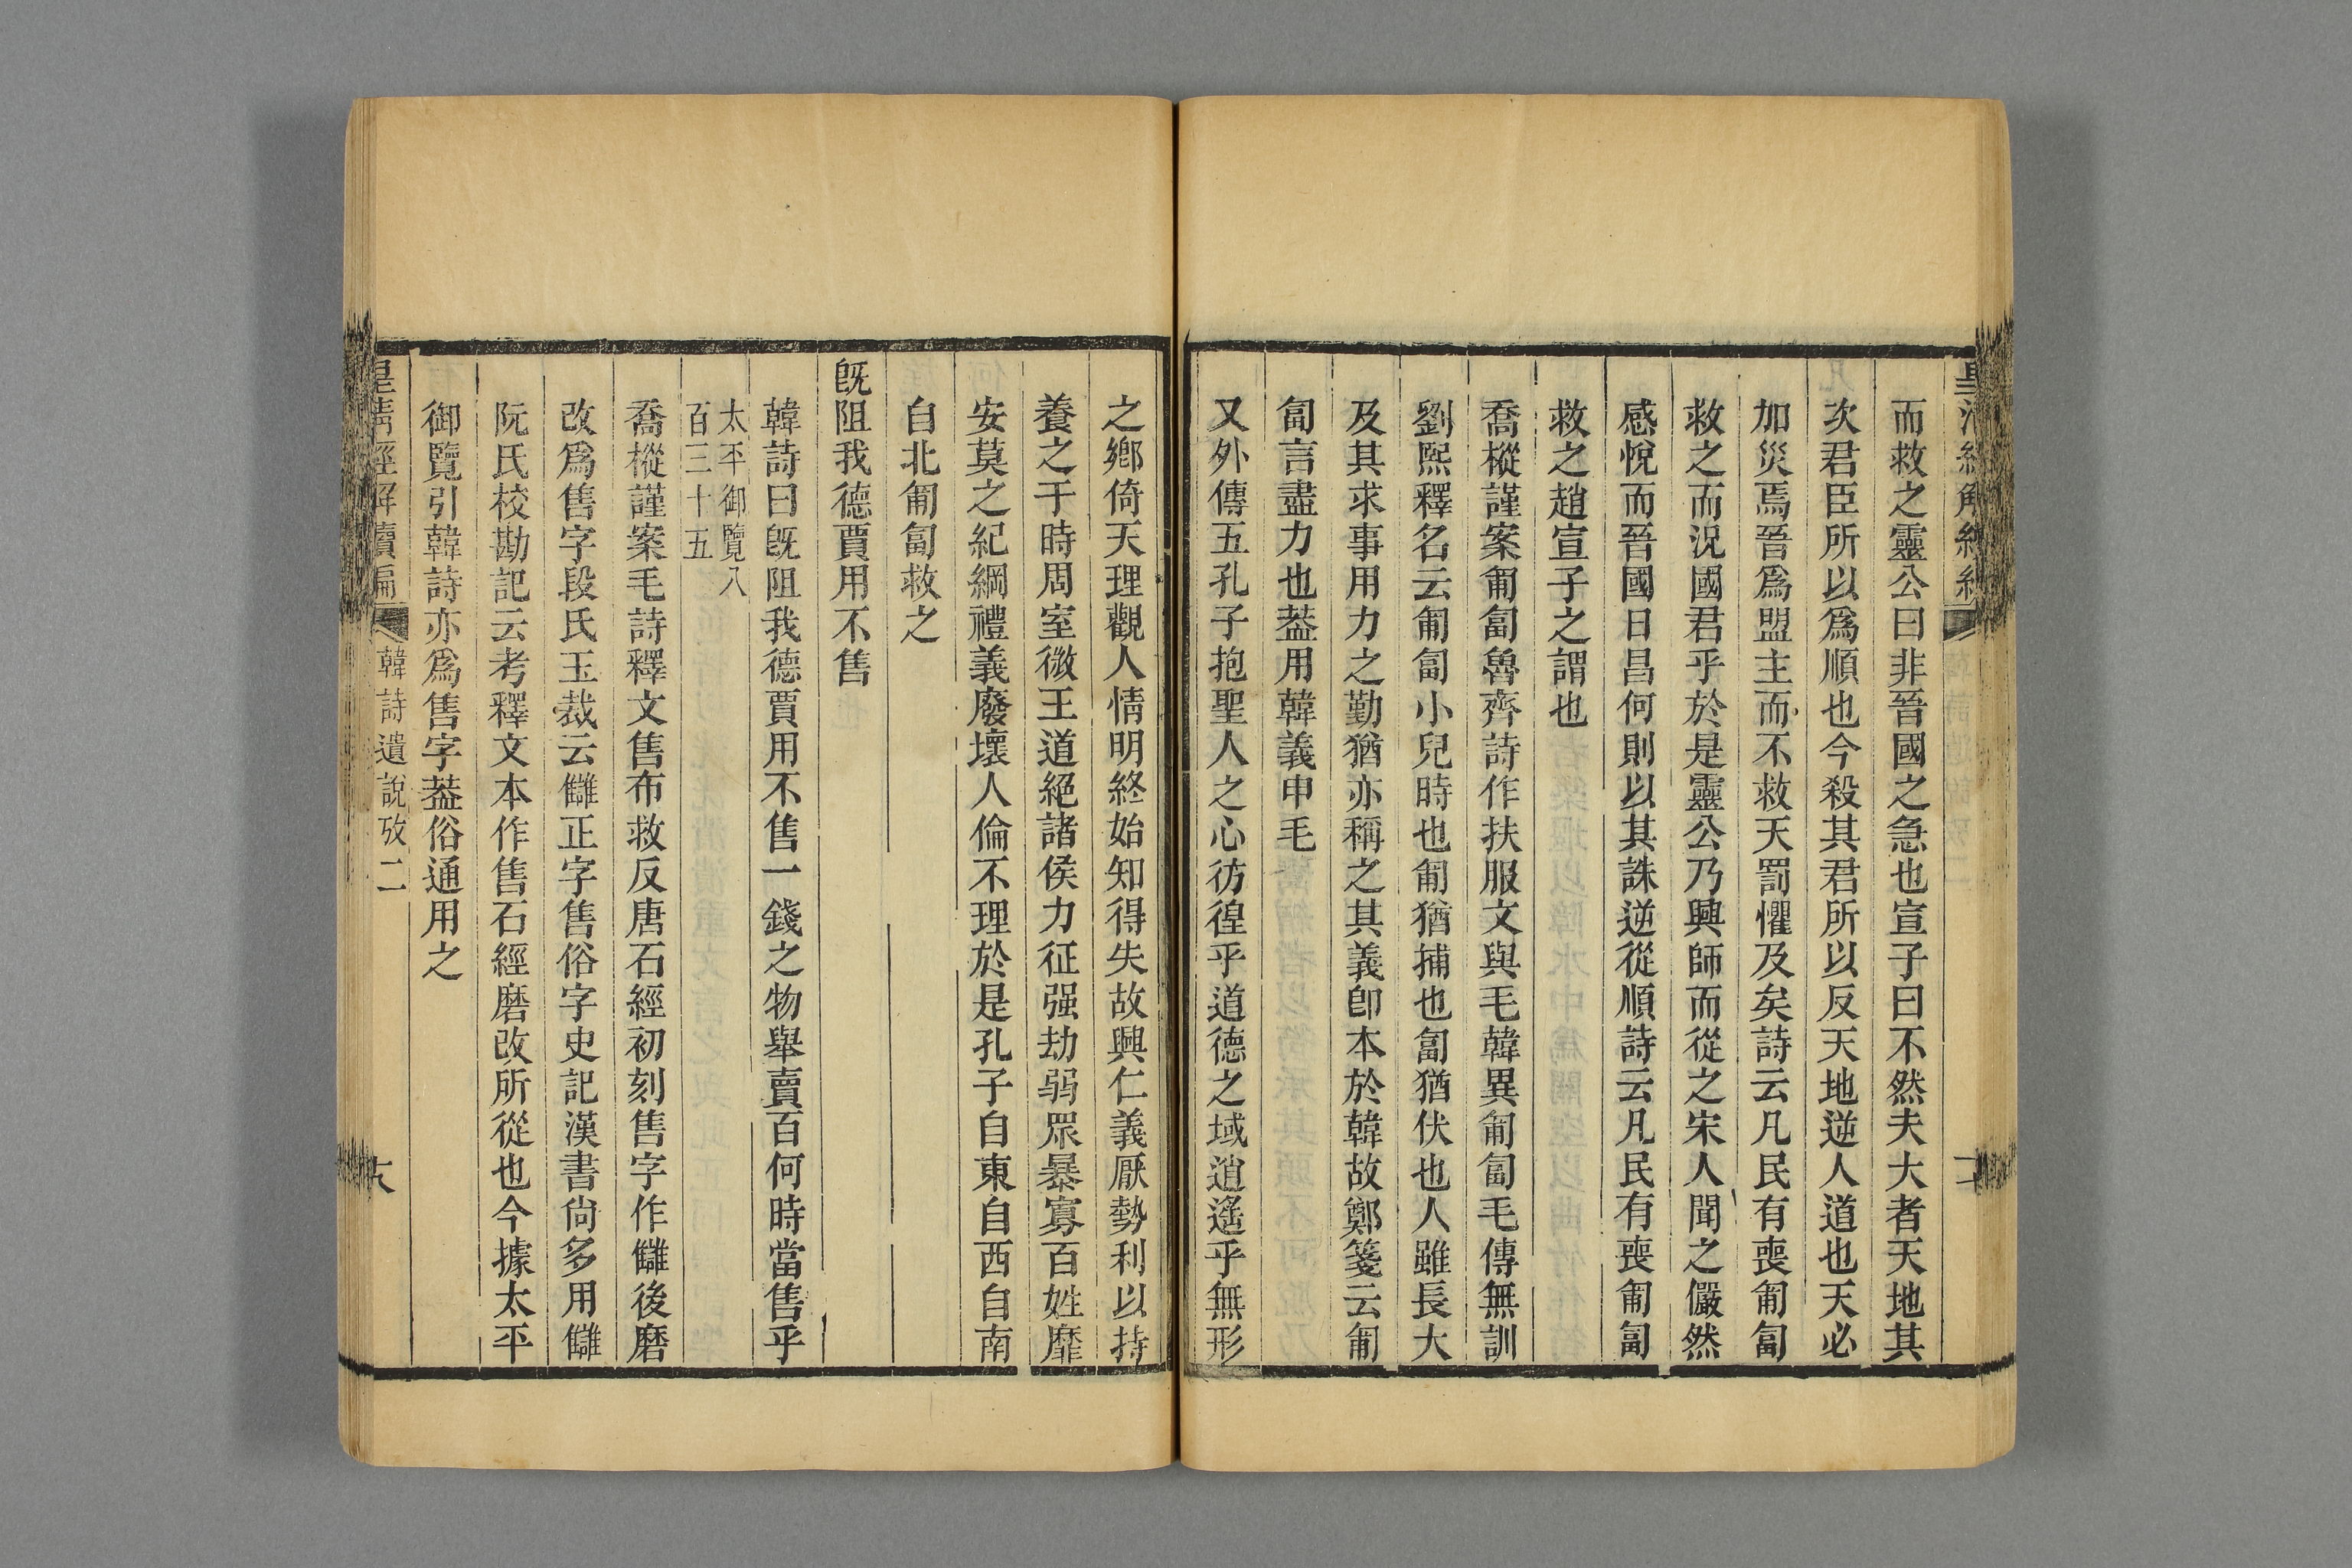 而救之靈公曰非晉國之急也宣子曰不然夫大者天地其
次君臣所以爲順也今殺其君所以反天地逆人道也天必
加災焉晉爲盟主而不救天罰懼及矣詩云凡民有喪匍匐
救之而況國君乎於是靈公乃興師而從之宋人聞之儼然
感悅而晉國日昌何則以其誅逆從順詩云凡民有喪匍匐
救之趙宣子之謂也
喬樅謹案匍匐魯齊詩作扶服文與毛韓異匍匐毛傳無訓
劉熙釋名云匍匐小兒時也匍猶捕也匐猶伏也人雖長大
及其求事用力之勤猶亦稱之其義卽本於韓故鄭箋云匍
匐言盡力也葢用韓義申毛
又外傳五孔子抱聖人之心彷徨乎道德之域逍遙乎無形
之鄉倚天理觀人情明終始知得失故興仁義厭勢利以持
養之于時周室微王道絕諸侯力征强劫弱眾暴寡百姓靡
安莫之紀綱禮義廢壞人倫不理於是孔子自東自西自南
自北匍匐救之
旣阻我德賈用不售
韓詩曰旣阻我德賈用不售一錢之物舉賣百何時當售乎
太平御覽八
百三十五
喬樅謹案毛詩釋文售布救反唐石經初刻售字作讎後磨
改爲售字段氏玉裁云讎正字售俗字史記漢書尙多用讎
阮氏校勘記云考釋文本作售石經磨改所從也今據太平
御覽引韓詩亦爲售字葢俗通用之
皇淸經解續編 韓詩遺說攷二